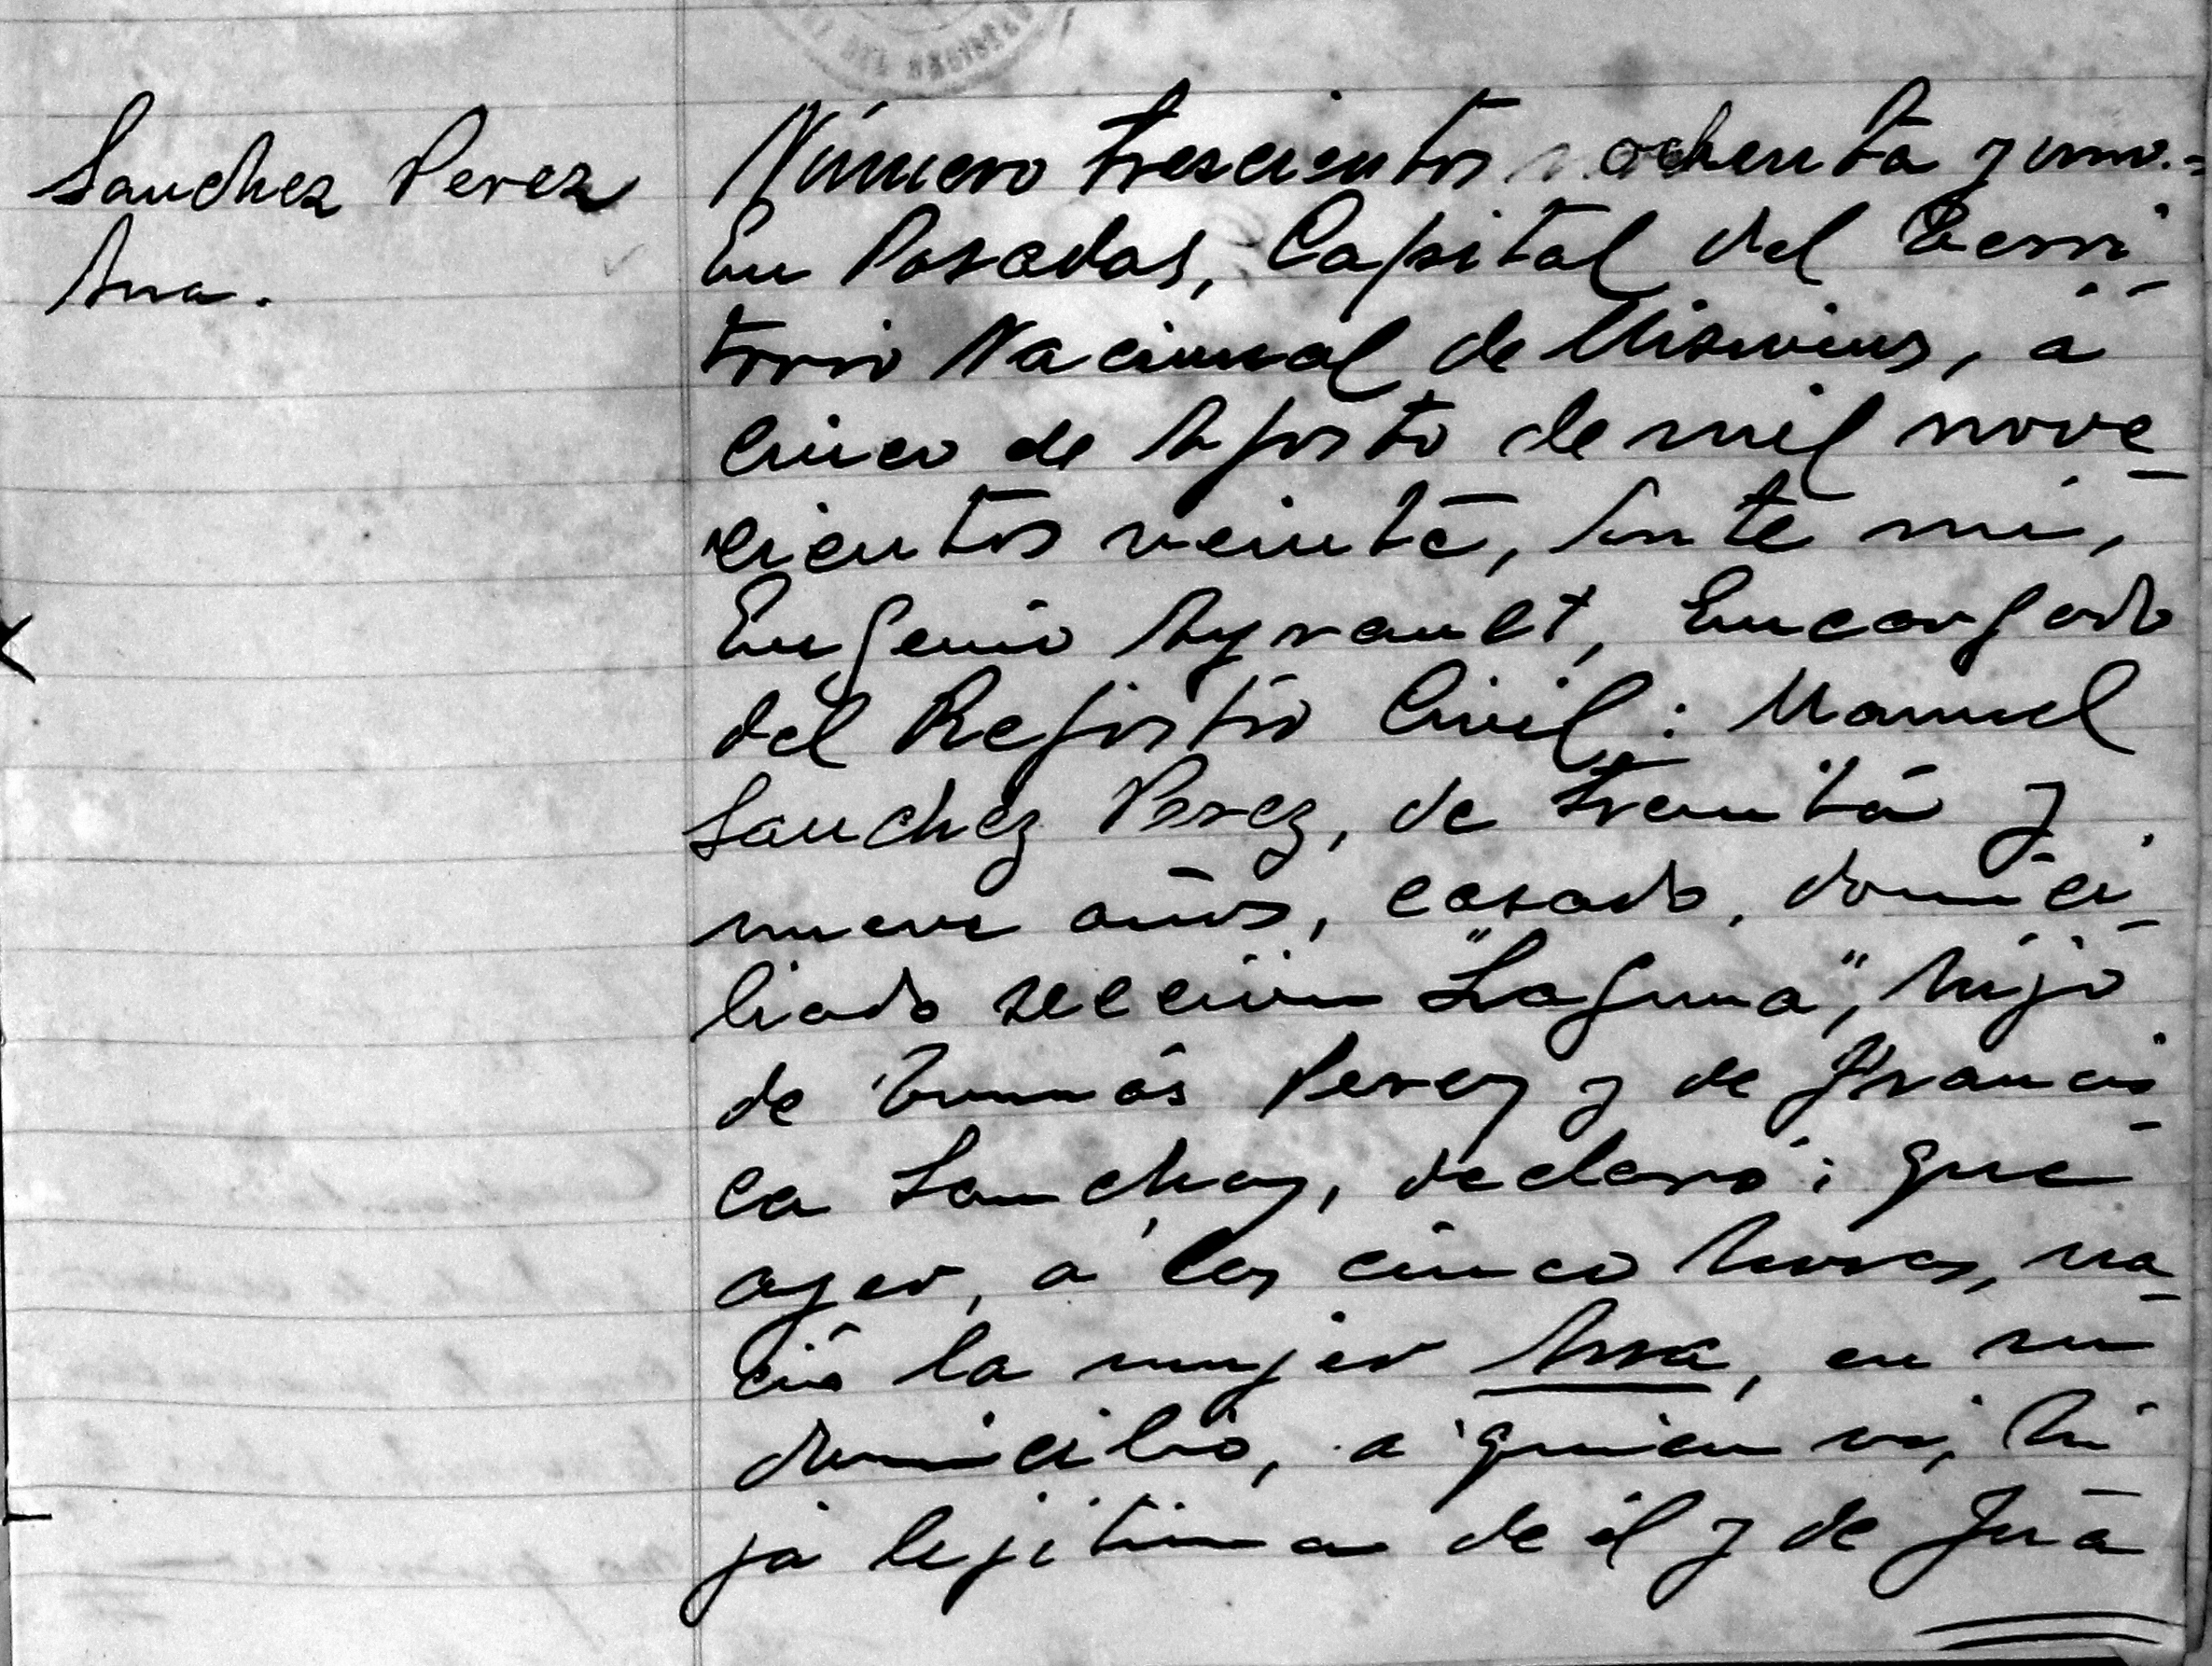 DEL REGISTRO
Sanchez Perez
Ana.
Número trescientos ochenta y uno.=
En Posadas, Capital del Terri-
torio Nacional de Misiones, á
cinco de Agosto de mil nove-
cientos veinte, Ante mi,
Eugenio Ayrault, Encargado
del Rejistro Civil: Manuel
Sanchez Perez, de treinta y
nueve años, casado, domici-
liado seccion "Laguna", hijo
de Tomás Perez y de Francis-
ca Sanchez, declaró: que
ayer, a las cinco horas, na-
ció la mujer Ana, en su
domicilio, a quien vi, hi-
ja lejitima de él y de Jua